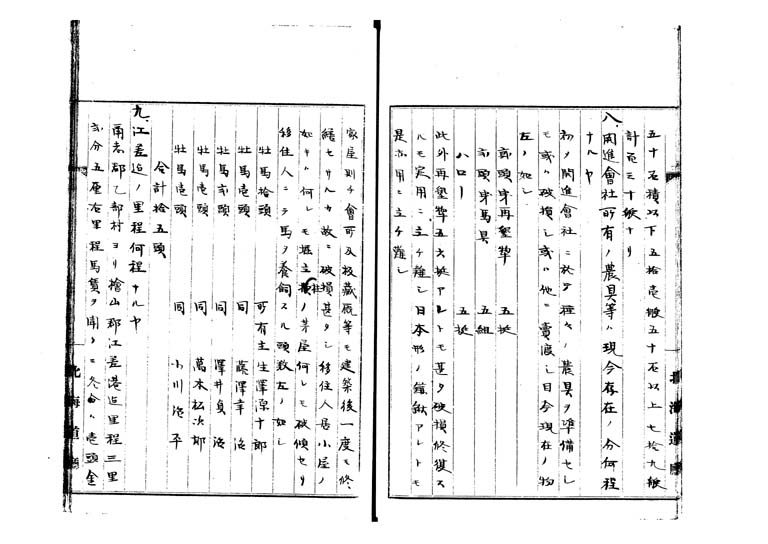 五十石積以下五拾壱艘五十石以上七拾九艘
計百三十艘ナリ
八、開進會社所有ノ農具等ハ現今存在ノ分何程
ナルヤ
初メ開進會社ニ於テ種々ノ農具ヲ準備セシ
モ或ハ破損シ或ハ他ニ賣渡シ目今現在ノ物
左ノ如シ
弐頭穿再墾犂 五挺
弐頭穿馬具 五組
ハロー 五挺
此外再墾犂五六挺アレトモ甚タ破損修復ス
ルモ実用ニ立チ難シ日本形ノ鎌鍬アレトモ
是亦用ニ立チ難シ
家屋則チ會所及板藏厩等モ建築後一度モ修
繕セサルカ故ニ破損甚タシ移住人居小屋ノ
如キハ何レモ掘立柱ノ茅屋何レモ破傾セリ
移住人ニテ馬ヲ養飼スル頭数左ノ如シ
牡馬拾頭 所有主 生澤深十郎
牡馬壱頭 同 藤澤幸治
牡馬弐頭 同 澤井負治
牡馬壱頭 同 萬木松次郎
牡馬壱頭 同 小川治平
合計拾五頭
九、江差迠ノ里程何程ナルヤ
爾志郡乙部村ヨリ檜山郡江差港迠里程三里
弐分五厘右里程馬賃ヲ聞クニ冬分ハ壱頭金
北海道廳
北海道廳